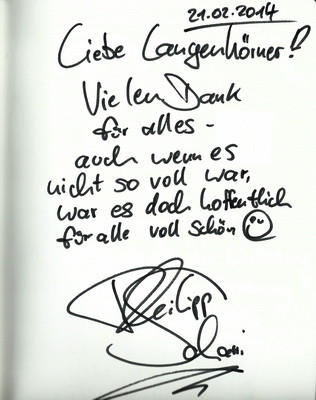 21.02.2014
Liebe Langenhörner!
Vielen Dank
für alles -
auch wenn es
nicht so voll war,
war es doch hoffentlich
für alle voll schön
Philipp